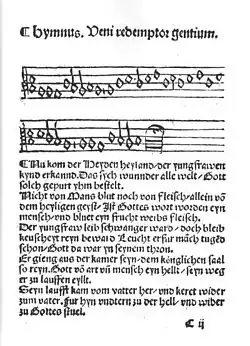 Hymnus. Veni redemptor gentium.
Nu kom der Heyden heyland / der yungfrawen
kynd erkannd. Das sych wunnder alle welt / Gott
solch gepurt yhm bestelt.
Nicht von Mans blut noch von fleisch / allein võ
dem heyligen geyst / Jst Gottes wort worden eyn
mensch / vnd bluet eyn frucht weibs fleisch.
Der yungfraw leib schwanger ward / doch bleib
keuscheyt reyn beward Leucht erfur mãch tugẽd
schon / Gott da war yn seynem thron.
Er gieng aus der kamer seyn / dem könglichen saal
so reyn. Gott võ art vñ mensch eyn hellt / seyn weg
er zu lauffen eyllt.
Seyn laufft kam vom vatter her / vnd keret wider
zum vater. Fur hyn vndtern zu der hell / vnd wider
zu Gottes stuel.
C ij